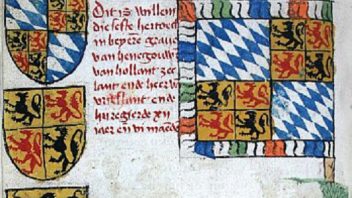 Dit is willem
die seste hertoch
in beyere grave
van henegouwen
van hollant zee
lant ende heer va
vrieslant ende
hi regierde xij
iaer en vi maede